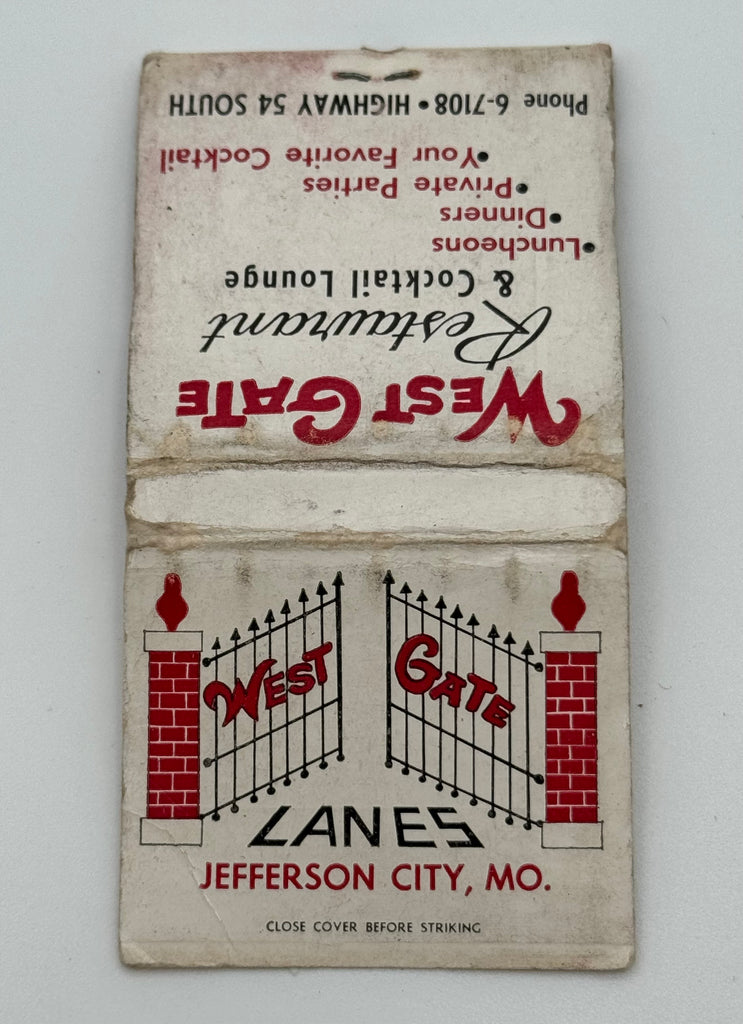 WEST GATE
Restaurant
& Cocktail Lounge
•Luncheons
•Dinners
•Private Parties
•Your Favorite Cocktail
Phone 6-7108 • HIGHWAY 54 SOUTH
WEST GATE
LANES
JEFFERSON CITY, MO.
CLOSE COVER BEFORE STRIKING